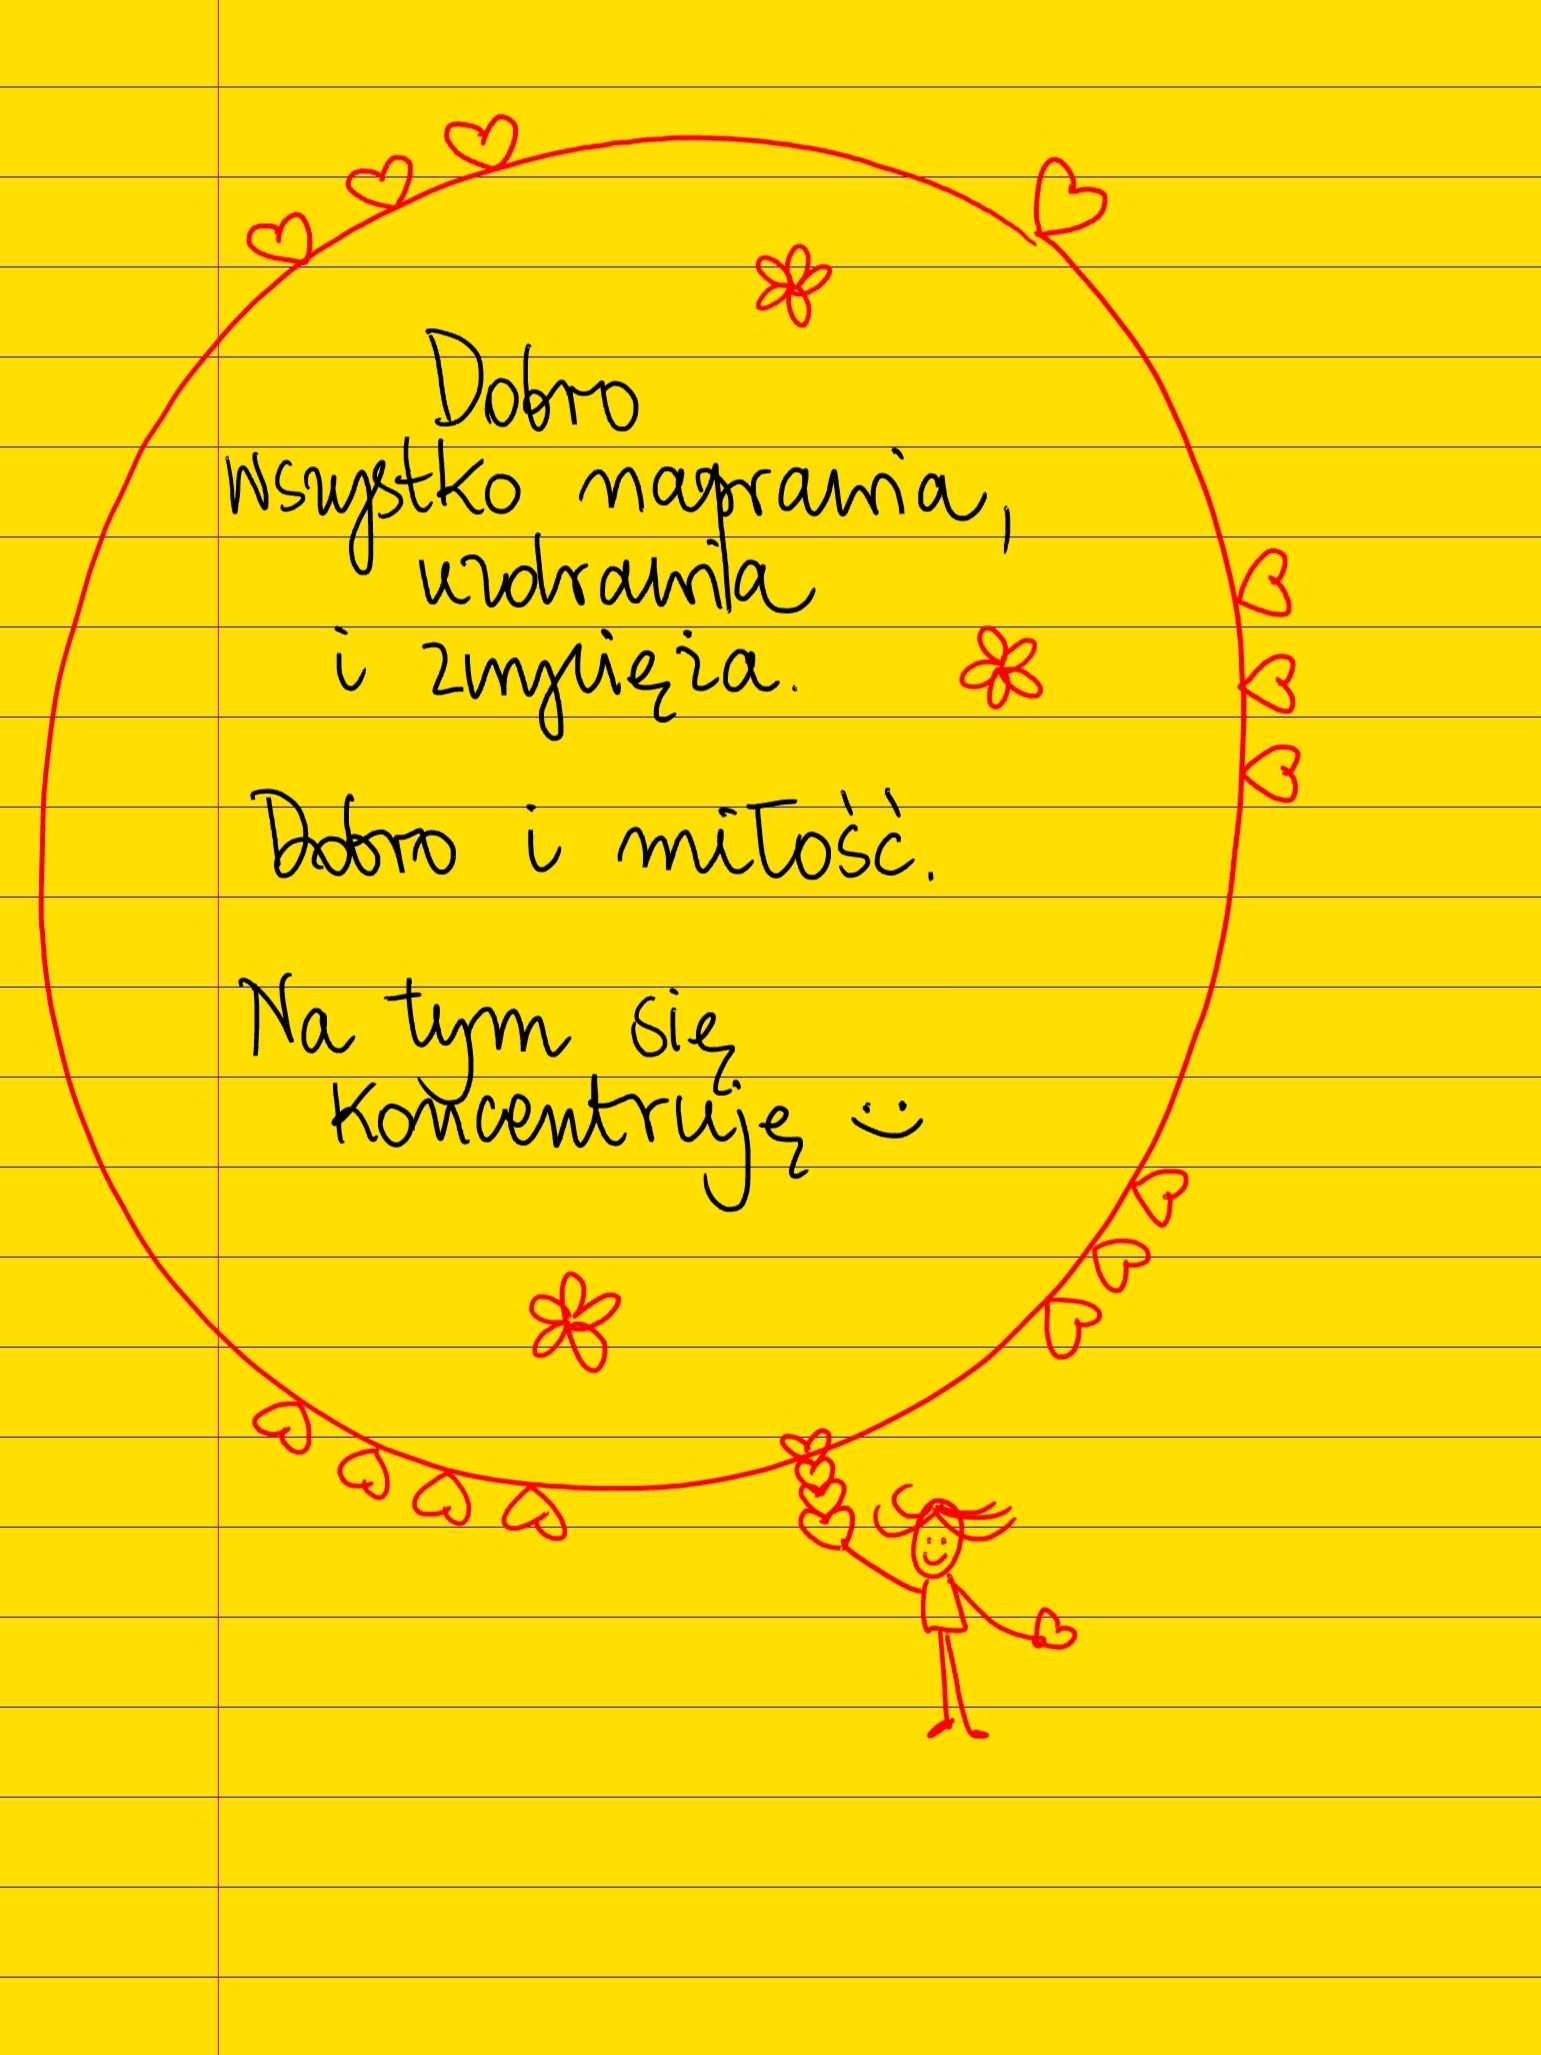 Dobro
wszystko naprawia,
uzdrawia
i zwycięża.
Dobro i miłość.
Na tym się
koncentruję :)